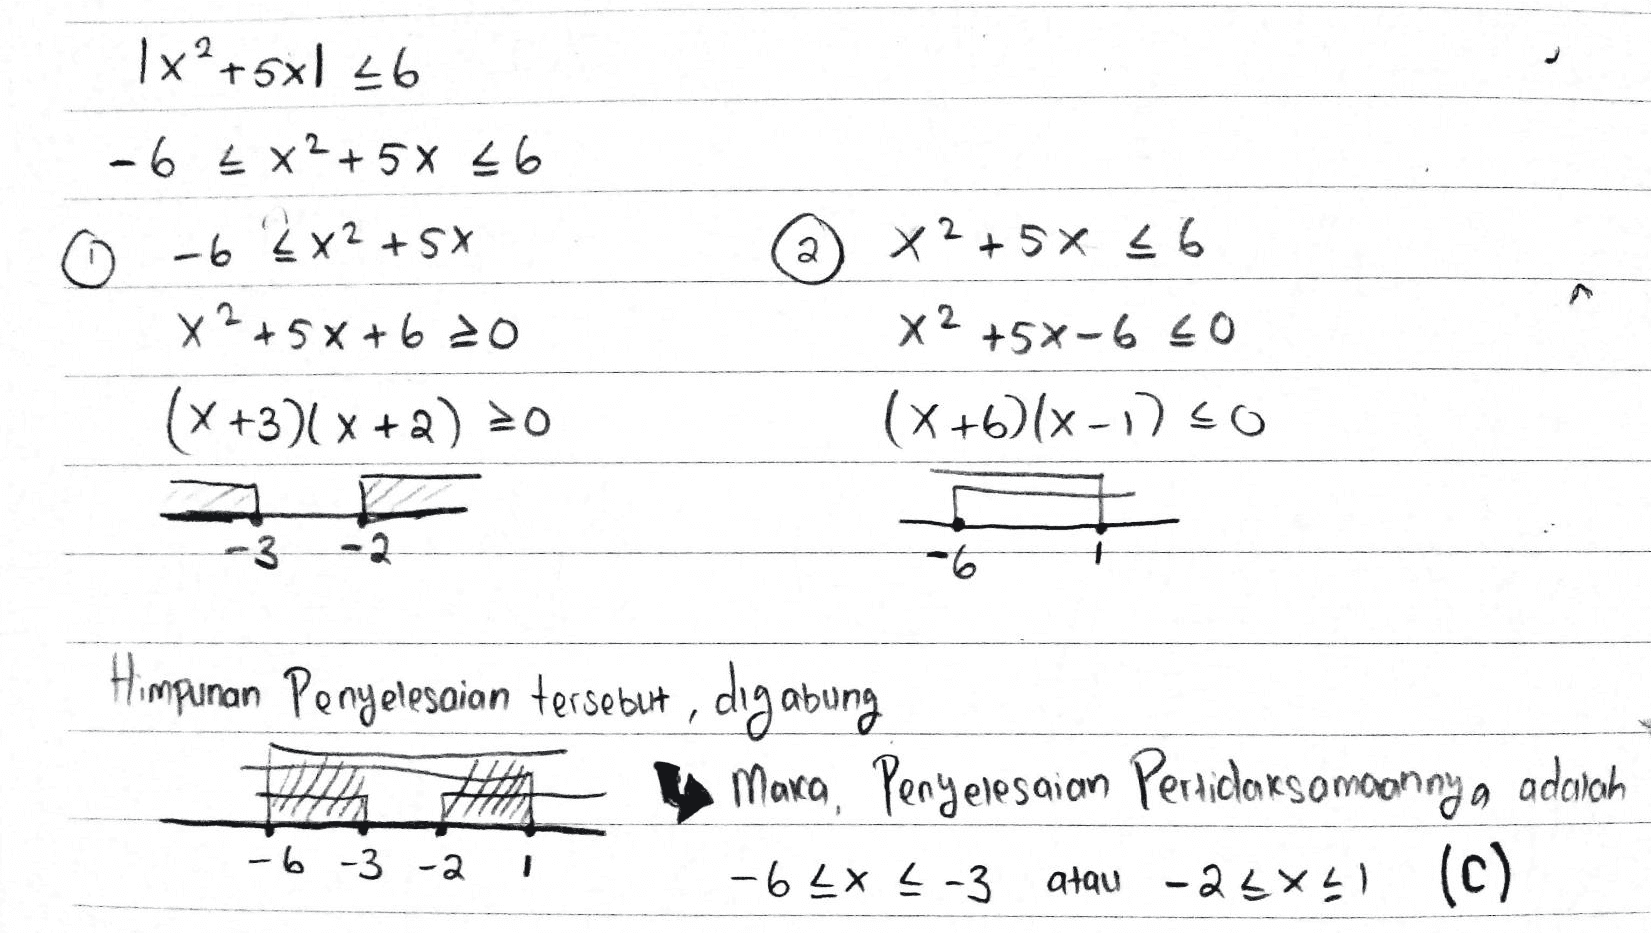 |x²+5x| ≤6
-6 ≤ x²+5x ≤6
① -6 ≤ x²+5x
② x²+5x ≤ 6
x²+5x+6 ≥0
x²+5x-6 ≤0
(x+3)(x+2) ≥0
(x+6)(x-1) ≤0
-3 -2
-6 1
Himpunan Penyelesaian tersebut, digabung
Maka, Penyelesaian Pertidaksamaannya adalah
-6 -3 -2 1
-6 ≤x ≤ -3 atau -2≤x≤1 (C)